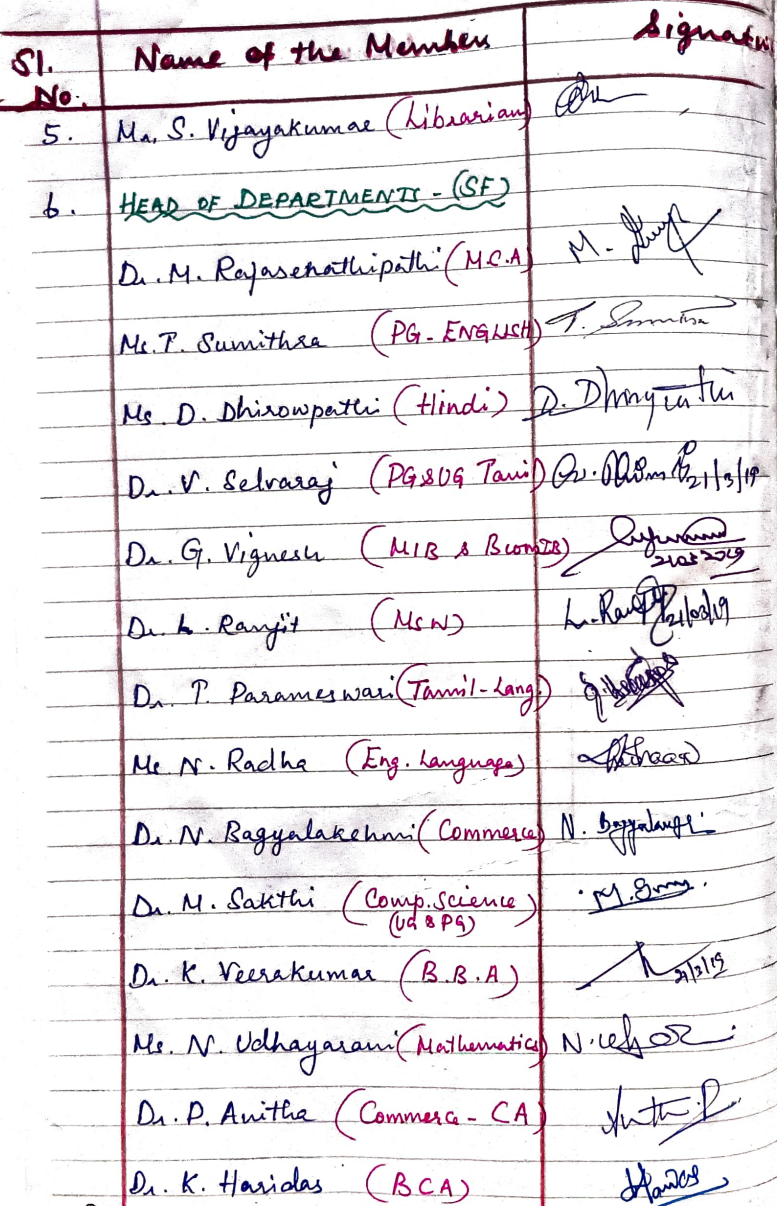 Sl. No. Name of the Members Signatu
5. Mr. S. Vijayakumar (Librarian)
6. HEAD OF DEPARTMENTS - (SF)
Dr. M. Rajasenathipathi (M.C.A) M.
Ms. T. Sumithra (PG - ENGLISH) T. Sumithra
Ms. D. Dhirowpathi (Hindi) D.
Dr. V. Selvaraj (PG & UG Tamil) 21/3/19
Dr. G. Vignesh (MIB & Bcom IB) 21032019
Dr. L. Ranjit (MSW) L. 21/03/19
Dr. P. Parameswari (Tamil - Lang.)
Ms N. Radha (Eng. Language)
Dr. N. Bagyalakshmi (Commerce) N.
Dr. M. Sakthi (Comp. Science (UG & PG) ) M.
Dr. K. Veerakumar (B.B.A) 21/3/19
Ms. N. Udhayarani (Mathematics) N.
Dr. P. Anitha (Commerce - CA)
Dr. K. Haridas (BCA)